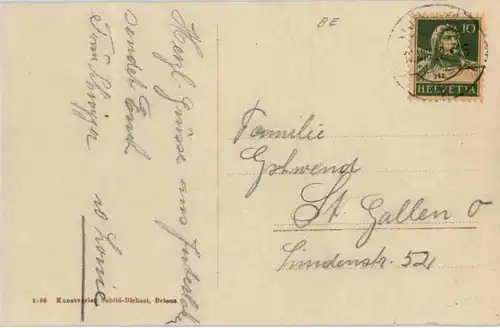 Herzl. Grüsse aus Interlak.
sendet Euch
Frau
u Louise
BE
10
HELVETIA
Familie
Gschwend
St Gallen O
Lindenstr. 52
Kunstverlag Schild-Bichsel, Brienz